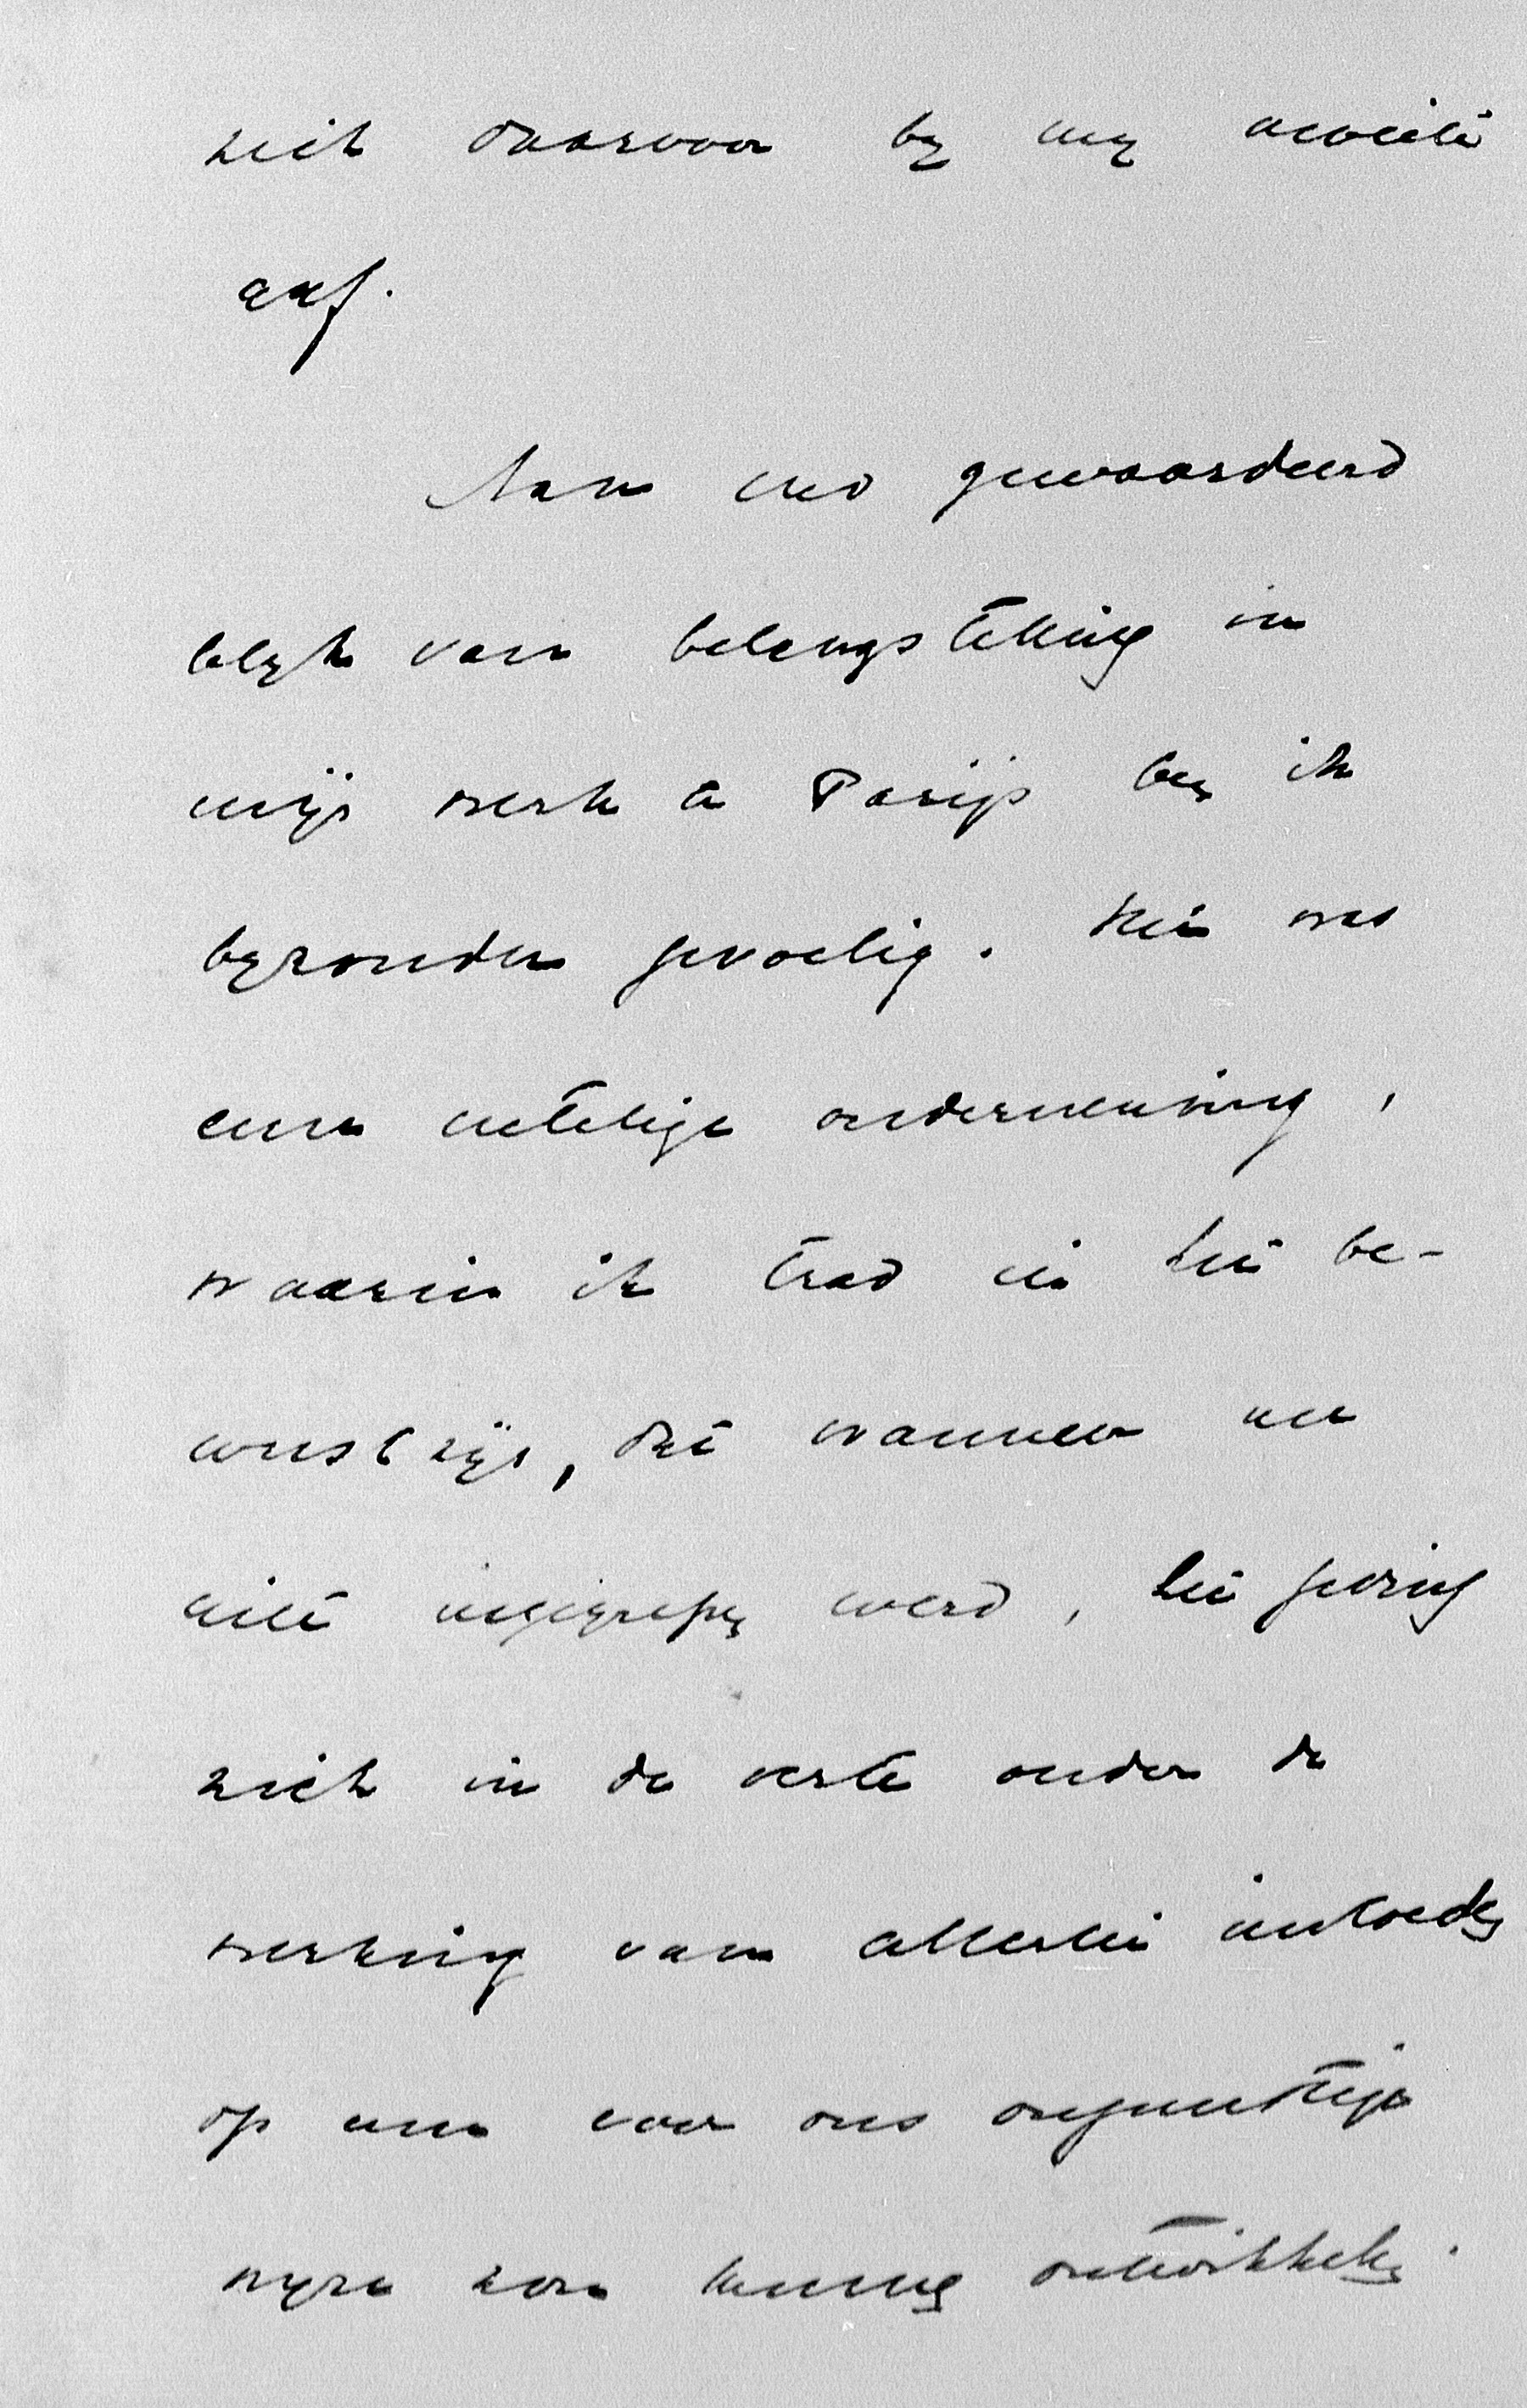 zich daarvoor by my moeite
gaf.
Aan uw gewaardeerd
blyk van belangstelling in
mijn werk te Parijs ben ik
byzonder gevoelig. Het was
eene netelige onderneming,
waarin ik trad in het be-
wustzijn, dat wanneer er
niet ingegrepen werd, het geding
zich in de verte onder de
werking van allerlei invloeden
op eene voor ons ongunstige
wyze zou kunnen ontwikkelen.